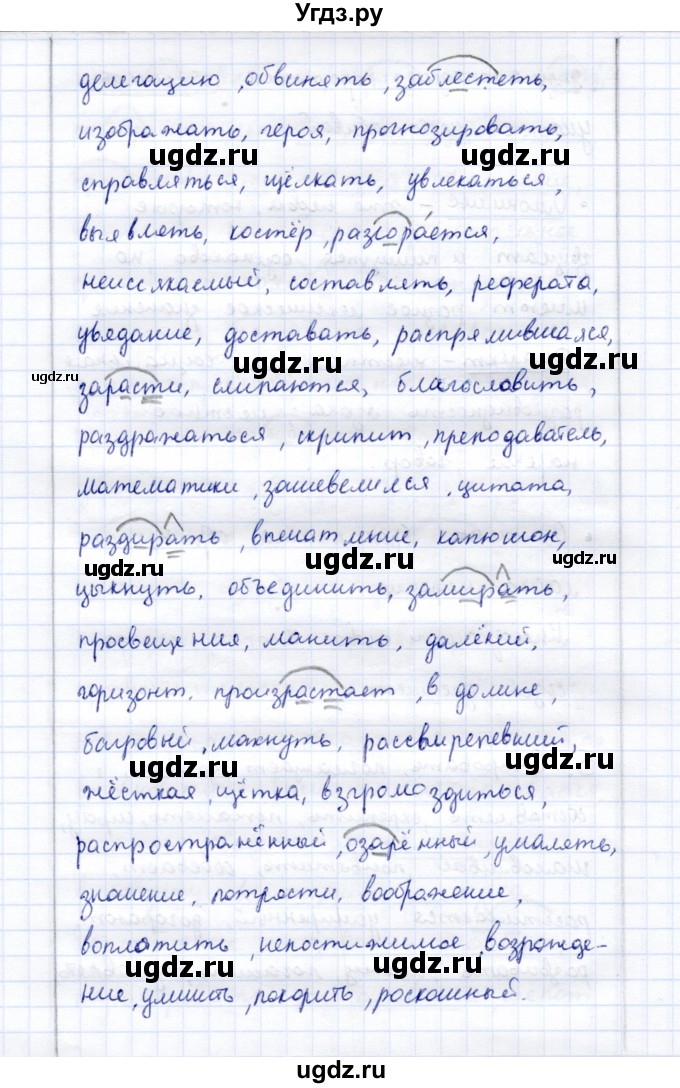 Угдз.ру
делегацию, обвинять, заблестеть,
изображать, героя, прогнозировать,
ugdz.ru ugdz.ru
справляться, щёлкать, увлекаться,
выявлять, костёр, разгорается,
ugdz.ru
неиссякаемый, составлять, реферата,
ugdz.ru ugdz.ru
увядание, доставать, распрямившаяся,
ugdz.ru
ugdz.ru
зарасти, слипаются, благословить,
раздражаться, скрипит, преподаватель,
ugdz.ru ugdz.ru
математики, зашевелился, цитата,
раздирать, впечатление, капюшон,
ugdz.ru ugdz.ru
цыкнуть, объединить, замирать,
ugdz.ru
просвещения, манить, далёкий,
ugdz.ru ugdz.ru
горизонт, произрастает, в долине,
багровый, махнуть, рассвирепевший,
ugdz.ru ugdz.ru
жёсткая, щётка, взгромоздиться,
ugdz.ru
распространённый, озарённый, умалять,
ugdz.ru ugdz.ru
значение, потрясти, воображение,
воплотить, непостижимое, возрожде-
ugdz.ru ugdz.ru
ние, улишить, покорить, роскошный.
ugdz.ru